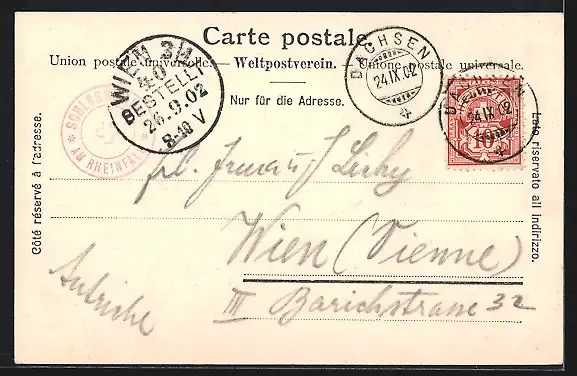 Carte postale.
Union postale universelle. — Weltpostverein. — Unione postale universale.
Nur für die Adresse.
Côté réservé à l'adresse.
Lato riservato all indirizzo.
WIEN 3
40
BESTELLT
26.9.02
8-40 V
DACHSEN
24.IX.02
SCHLOSS
AM RHEINFALL
24.IX.02
10
frl. Irma
Wien (Vienne)
III Barichstrasse 32
Autriche